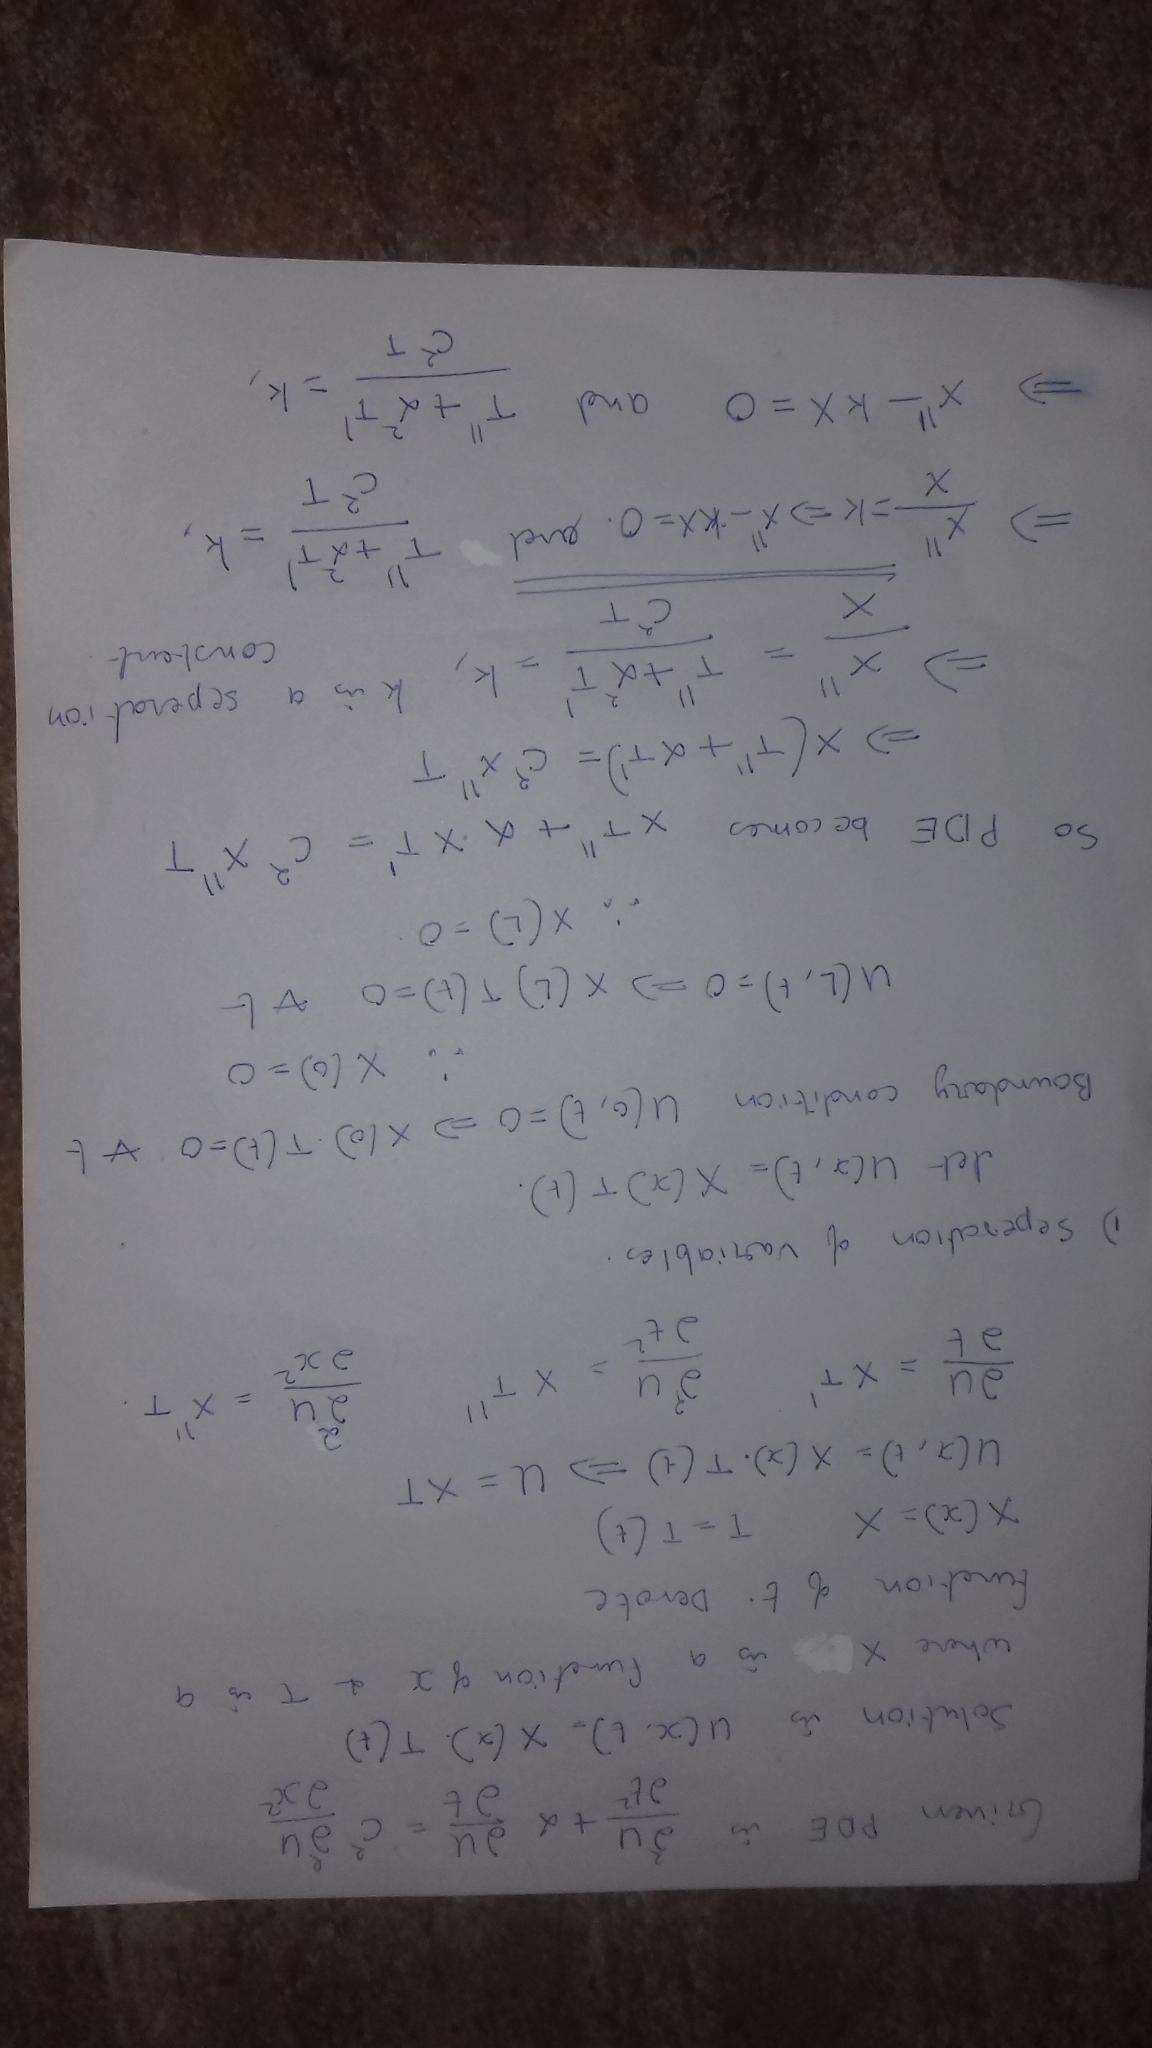 Given PDE is ∂²u/∂t² + α ∂u/∂t = c² ∂²u/∂x²
Solution is u(x,t) = X(x). T(t)
where X is a function of x & T is a
function of t. Denote
X(x) = X T = T(t)
u(x,t) = X(x).T(t) ⇒ U = XT
∂u/∂t = XT' ∂²u/∂t² = XT'' ∂²u/∂x² = X''T.
1) Seperation of variables.
let u(x,t) = X(x) T(t).
Boundary condition u(0,t)=0 ⇒ X(0).T(t)=0 ∀ t
∴ X(0) = 0
u(L,t)=0 ⇒ X(L) T(t)=0 ∀ t
∴ X(L) = 0.
So PDE becomes XT'' + α.XT' = c² X''T
⇒ X(T'' + αT') = c² X'' T
⇒ X''/X = (T'' + α²T')/(c²T) = k, k is a seperation
constent.
⇒ X''/X = k ⇒ X'' - kX = 0. and (T'' + α²T')/(c²T) = k,
⇒ X'' - kX = 0 and (T'' + α²T')/(c²T) = k,